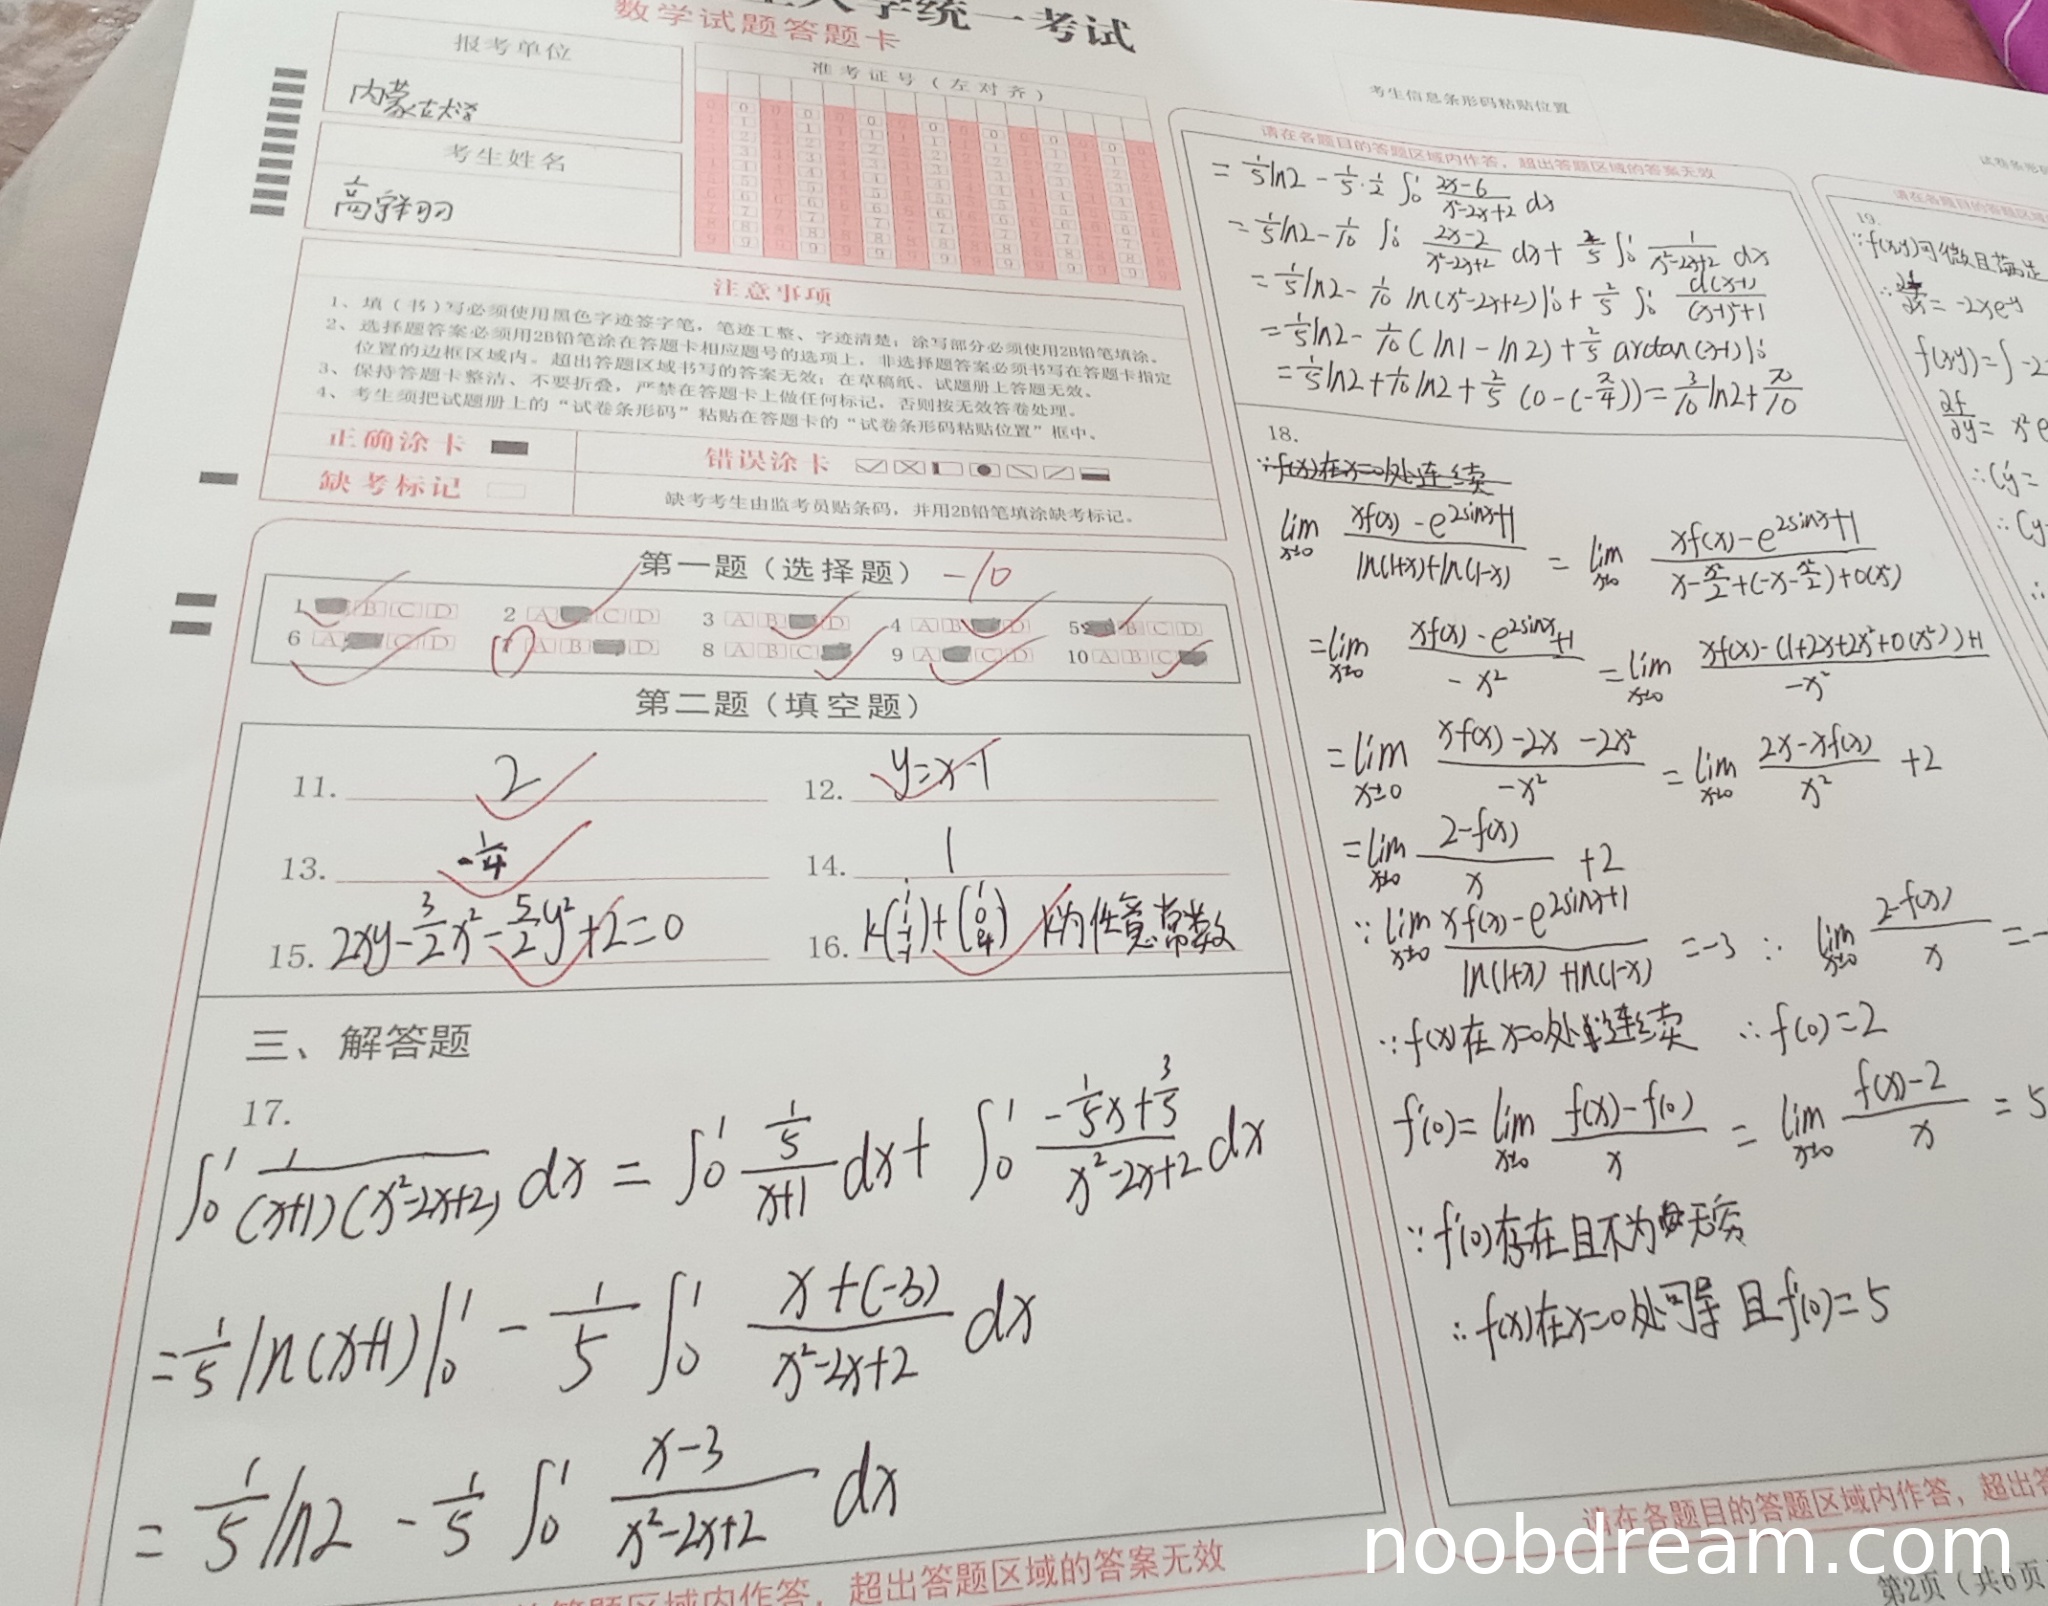 学统一考试
数学试题答题卡
报考单位
内蒙古大学
考生姓名
高
准考证号(左对齐)
注意事项
1、填(书)写必须使用黑色字迹签字笔,笔迹工整、字迹清楚;涂写部分必须使用2B铅笔填涂。
2、选择题答案必须用2B铅笔涂在答题卡相应题号的选项上,非选择题答案必须书写在答题卡指定
位置的边框区域内。超出答题区域书写的答案无效;在草稿纸、试题册上答题无效。
3、保持答题卡整洁、不要折叠,严禁在答题卡上做任何标记,否则按无效答卷处理。
4、考生须把试题册上的“试卷条形码”粘贴在答题卡的“试卷条形码粘贴位置”框中。
正确涂卡
错误涂卡
缺考标记
缺考考生由监考员贴条码,并用2B铅笔填涂缺考标记。
第一题(选择题) -10
1 B C D 2 A C D 3 A B D 4 A B D 5 B C D
6 A C D 7 A B D 8 A B C 9 A C D 10 A B C
第二题(填空题)
11. 2 12. y=x-1
13. -1/4 14. 1
15. 2xy-3/2x²-5/2y²+2=0 16. k + k为任意常数
三、解答题
17.
∫₀¹ 1/((x+1)(x²-2x+2)) dx = ∫₀¹ (1/5)/(x+1) dx + ∫₀¹ (-1/5x+3/5)/(x²-2x+2) dx
= 1/5 ln(x+1)|₀¹ - 1/5 ∫₀¹ (x+(-3))/(x²-2x+2) dx
= 1/5 ln2 - 1/5 ∫₀¹ (x-3)/(x²-2x+2) dx
超出答题区域的答案无效
考生信息条形码粘贴位置
请在各题目的答题区域内作答,超出答题区域的答案无效
= 1/5 ln2 - 1/5·1/2 ∫₀¹ (2x-6)/(x²-2x+2) dx
= 1/5 ln2 - 1/10 ∫₀¹ (2x-2)/(x²-2x+2) dx + 2/5 ∫₀¹ 1/(x²-2x+2) dx
= 1/5 ln2 - 1/10 ln(x²-2x+2)|₀¹ + 2/5 ∫₀¹ d(x-1)/((x-1)²+1)
= 1/5 ln2 - 1/10 (ln1-ln2) + 2/5 arctan(x-1)|₀¹
= 1/5 ln2 + 1/10 ln2 + 2/5 (0-(-π/4)) = 3/10 ln2 + π/10
18.
∵f(x)在x=0处连续
lim x→0 (xf(x)-e^(2sinx)+1)/(ln(1+x)+ln(1-x)) = lim x→0 (xf(x)-e^(2sinx)+1)/(x-x²/2+(-x-x²/2)+o(x²))
= lim x→0 (xf(x)-e^(2sinx)+1)/(-x²) = lim x→0 (xf(x)-(1+2x+2x²+o(x²))+1)/(-x²)
= lim x→0 (xf(x)-2x-2x²)/(-x²) = lim x→0 (2x-xf(x))/x² +2
= lim x→0 (2-f(x))/x +2
∵ lim x→0 (xf(x)-e^(2sinx)+1)/(ln(1+x)+ln(1-x)) = -3 ∴ lim x→0 (2-f(x))/x = -
∵f(x)在x=0处连续 ∴f(0)=2
f'(0)= lim x→0 (f(x)-f(0))/x = lim x→0 (f(x)-2)/x = 5
∵f'(0)存在且不为无穷
∴f(x)在x=0处可导 且f'(0)=5
请在各题目的答题区域内作答,超出答
第2页(共6页
试卷条形码
请在各题目的答题区域
19.
∵f(x,y)可微且满足
∴ ∂f/∂x = -2xe^-y
f(x,y)=∫-2
∂f/∂y = x²e
∴C'y=
∴Cy
noobdream.com